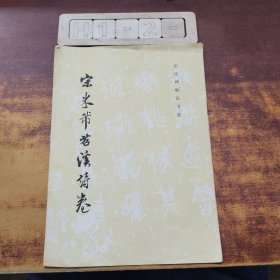 H1-2-
历代碑帖法书选
宋米芾苕溪诗卷